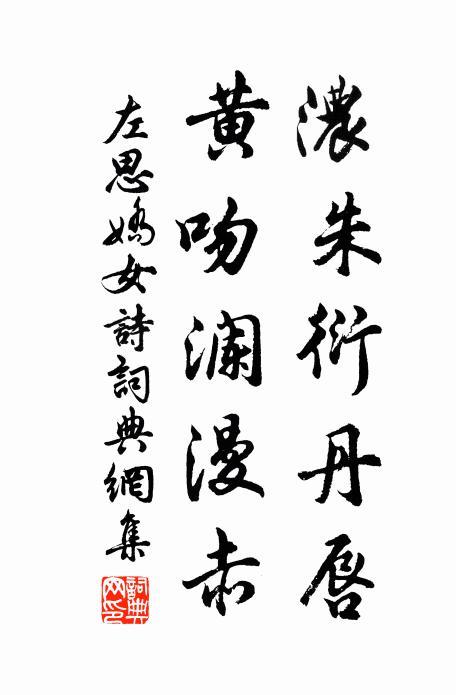 濃朱衍丹唇
黄吻瀾漫赤
左思嬌女詩詞典網集
詞典网印